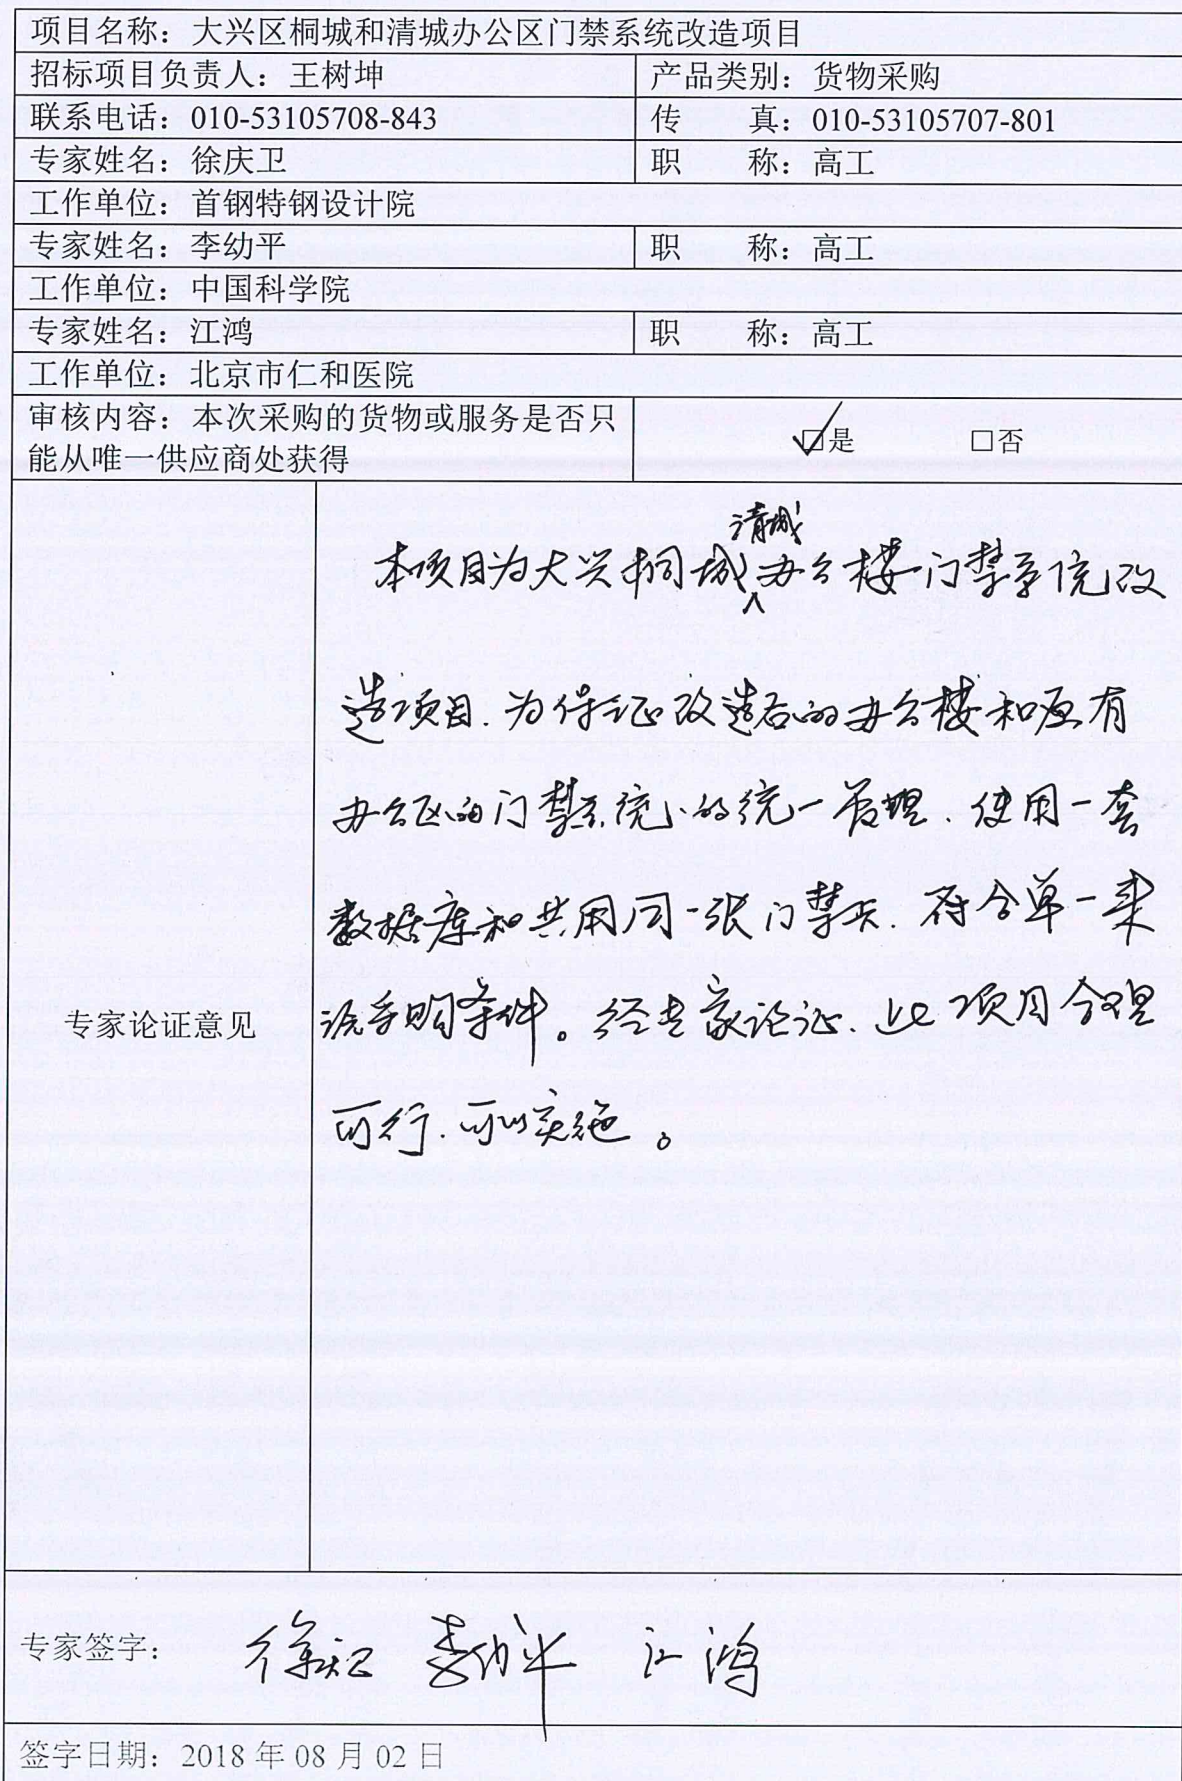 项目名称：大兴区桐城和清城办公区门禁系统改造项目
招标项目负责人：王树坤 产品类别：货物采购
联系电话：010-53105708-843 传 真：010-53105707-801
专家姓名：徐庆卫 职 称：高工
工作单位：首钢特钢设计院
专家姓名：李幼平 职 称：高工
工作单位：中国科学院
专家姓名：江鸿 职 称：高工
工作单位：北京市仁和医院
审核内容：本次采购的货物或服务是否只
能从唯一供应商处获得
☑是 □否
专家论证意见
清城
本项目为大兴桐城∧办公楼门禁系统改
造项目、为保证改造后的办公楼和原有
办公区的门禁系统的统一管理、使用一套
数据库和共用同一张门禁卡、符合单一来
源采购条件。经专家论证、此项目合理
可行、可以实施。
专家签字： 徐庆卫 李幼平 江鸿
签字日期：2018年08月02日